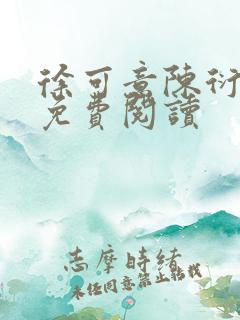 徐可意陳衍
免費閱讀
志摩時緒
未经同意禁止転載